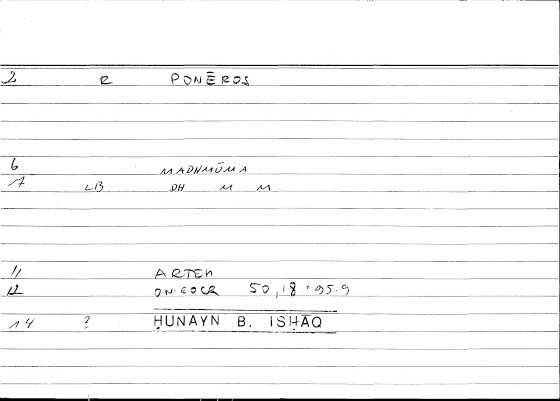 2 R PONĒROS
6 MADHMŪMA
7 LB DH M M
11 ARTEM
12 ON.EOCR 50,18 - 95.9
14 ? ḤUNAYN B. ISḤĀQ